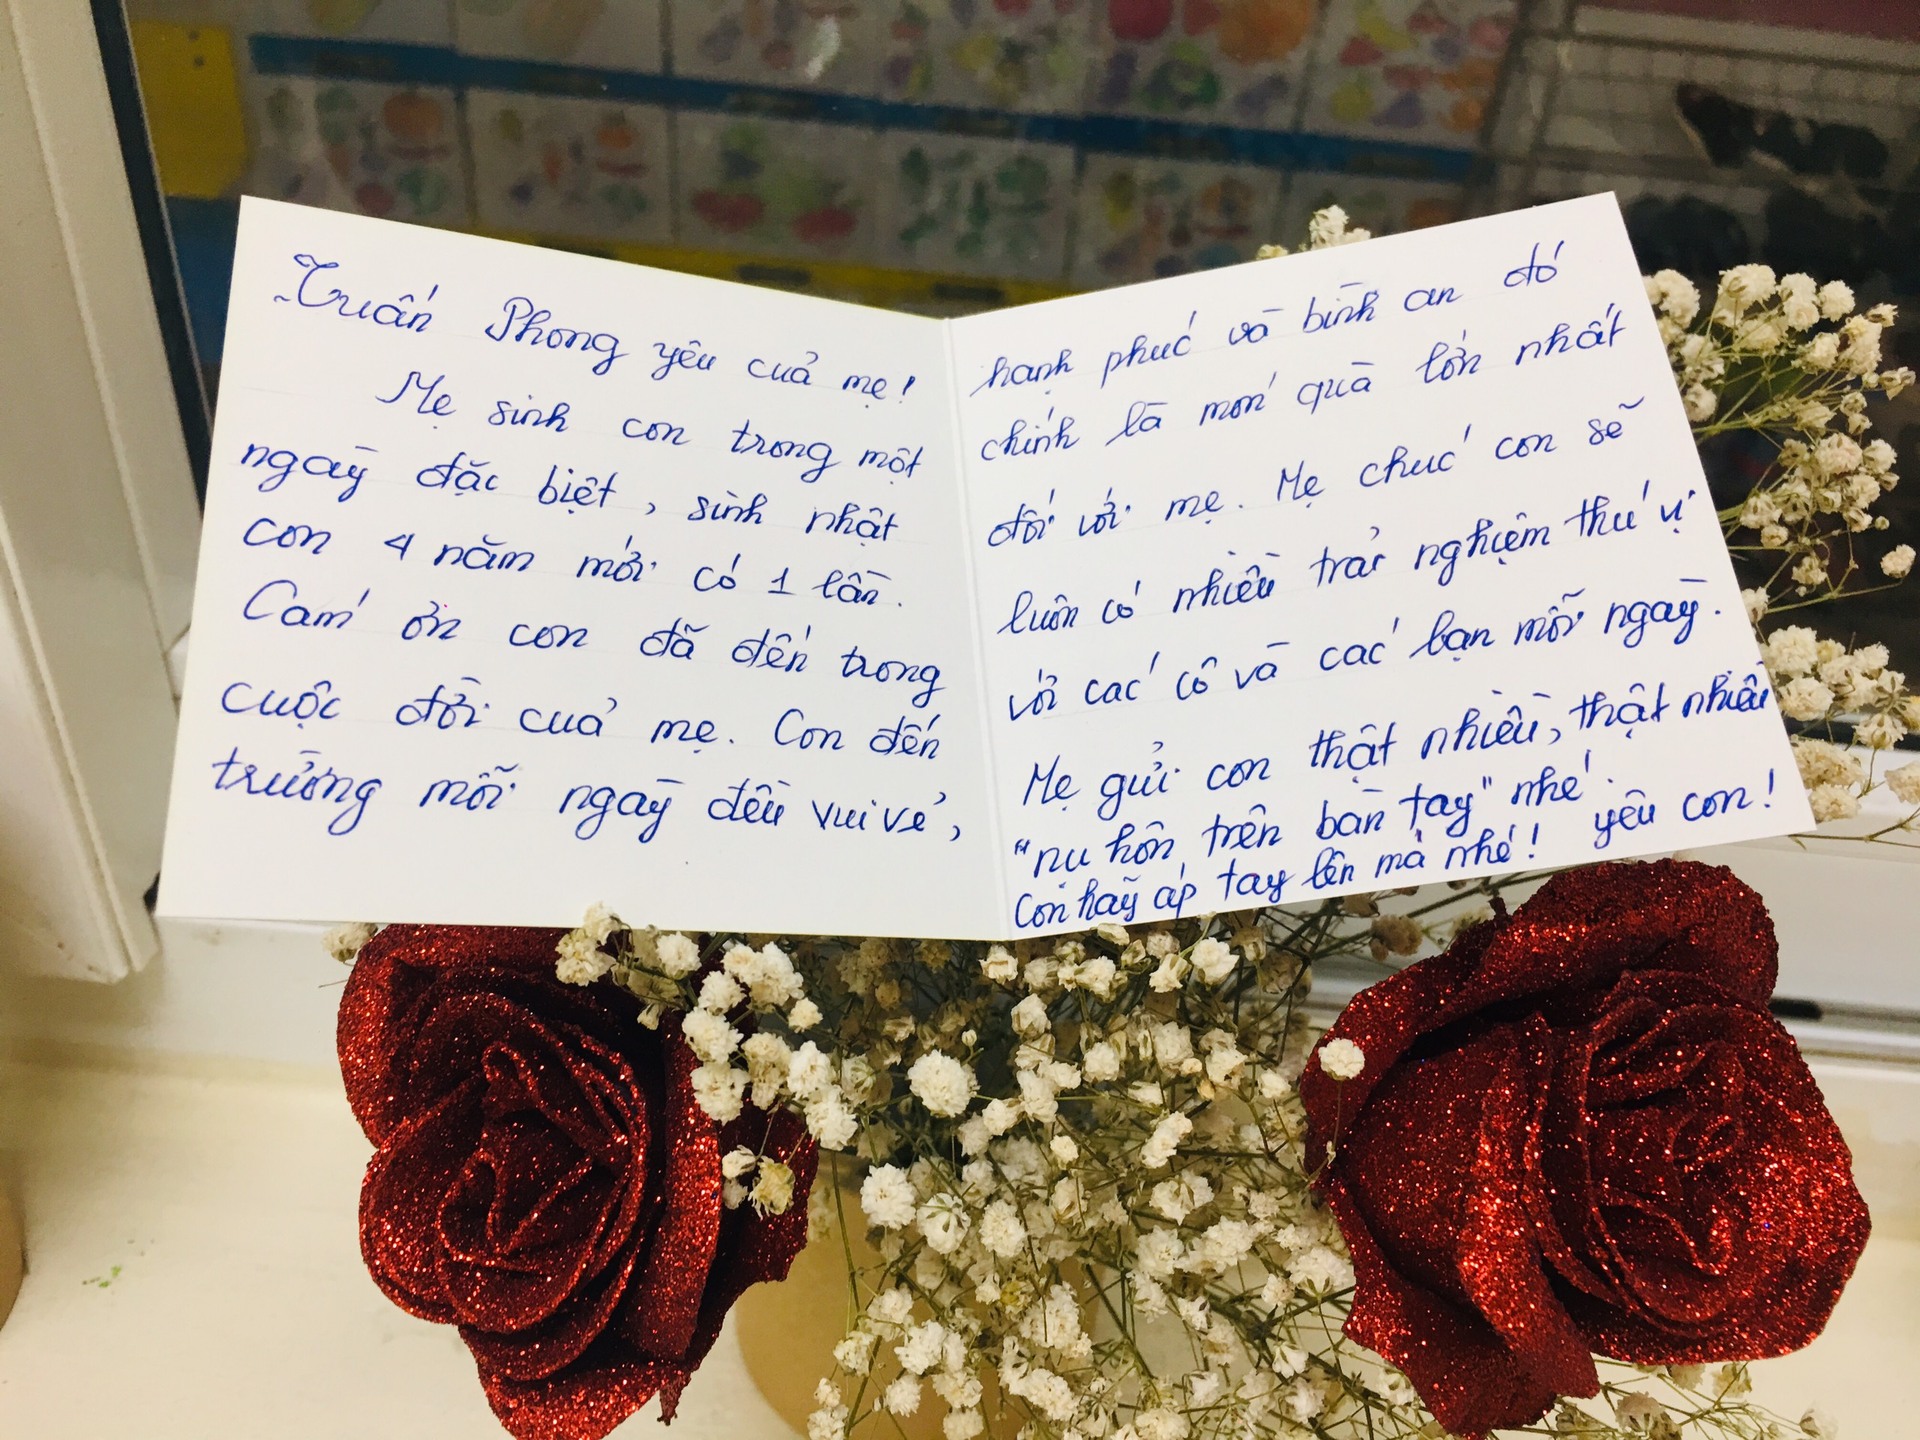 Tuấn Phong yêu của mẹ!
Mẹ sinh con trong một
ngày đặc biệt, sinh nhật
con 4 năm mới có 1 lần.
Cám ơn con đã đến trong
cuộc đời của mẹ. Con đến
trường mỗi ngày đều vui vẻ,
hạnh phúc và bình an đó
chính là món quà lớn nhất
đối với mẹ. Mẹ chúc con sẽ
luôn có nhiều trải nghiệm thú vị
với các cô và các bạn mỗi ngày.
Mẹ gửi con thật nhiều, thật nhiều
"nụ hôn trên bàn tay" nhé!
Con hãy áp tay lên má nhé! yêu con!